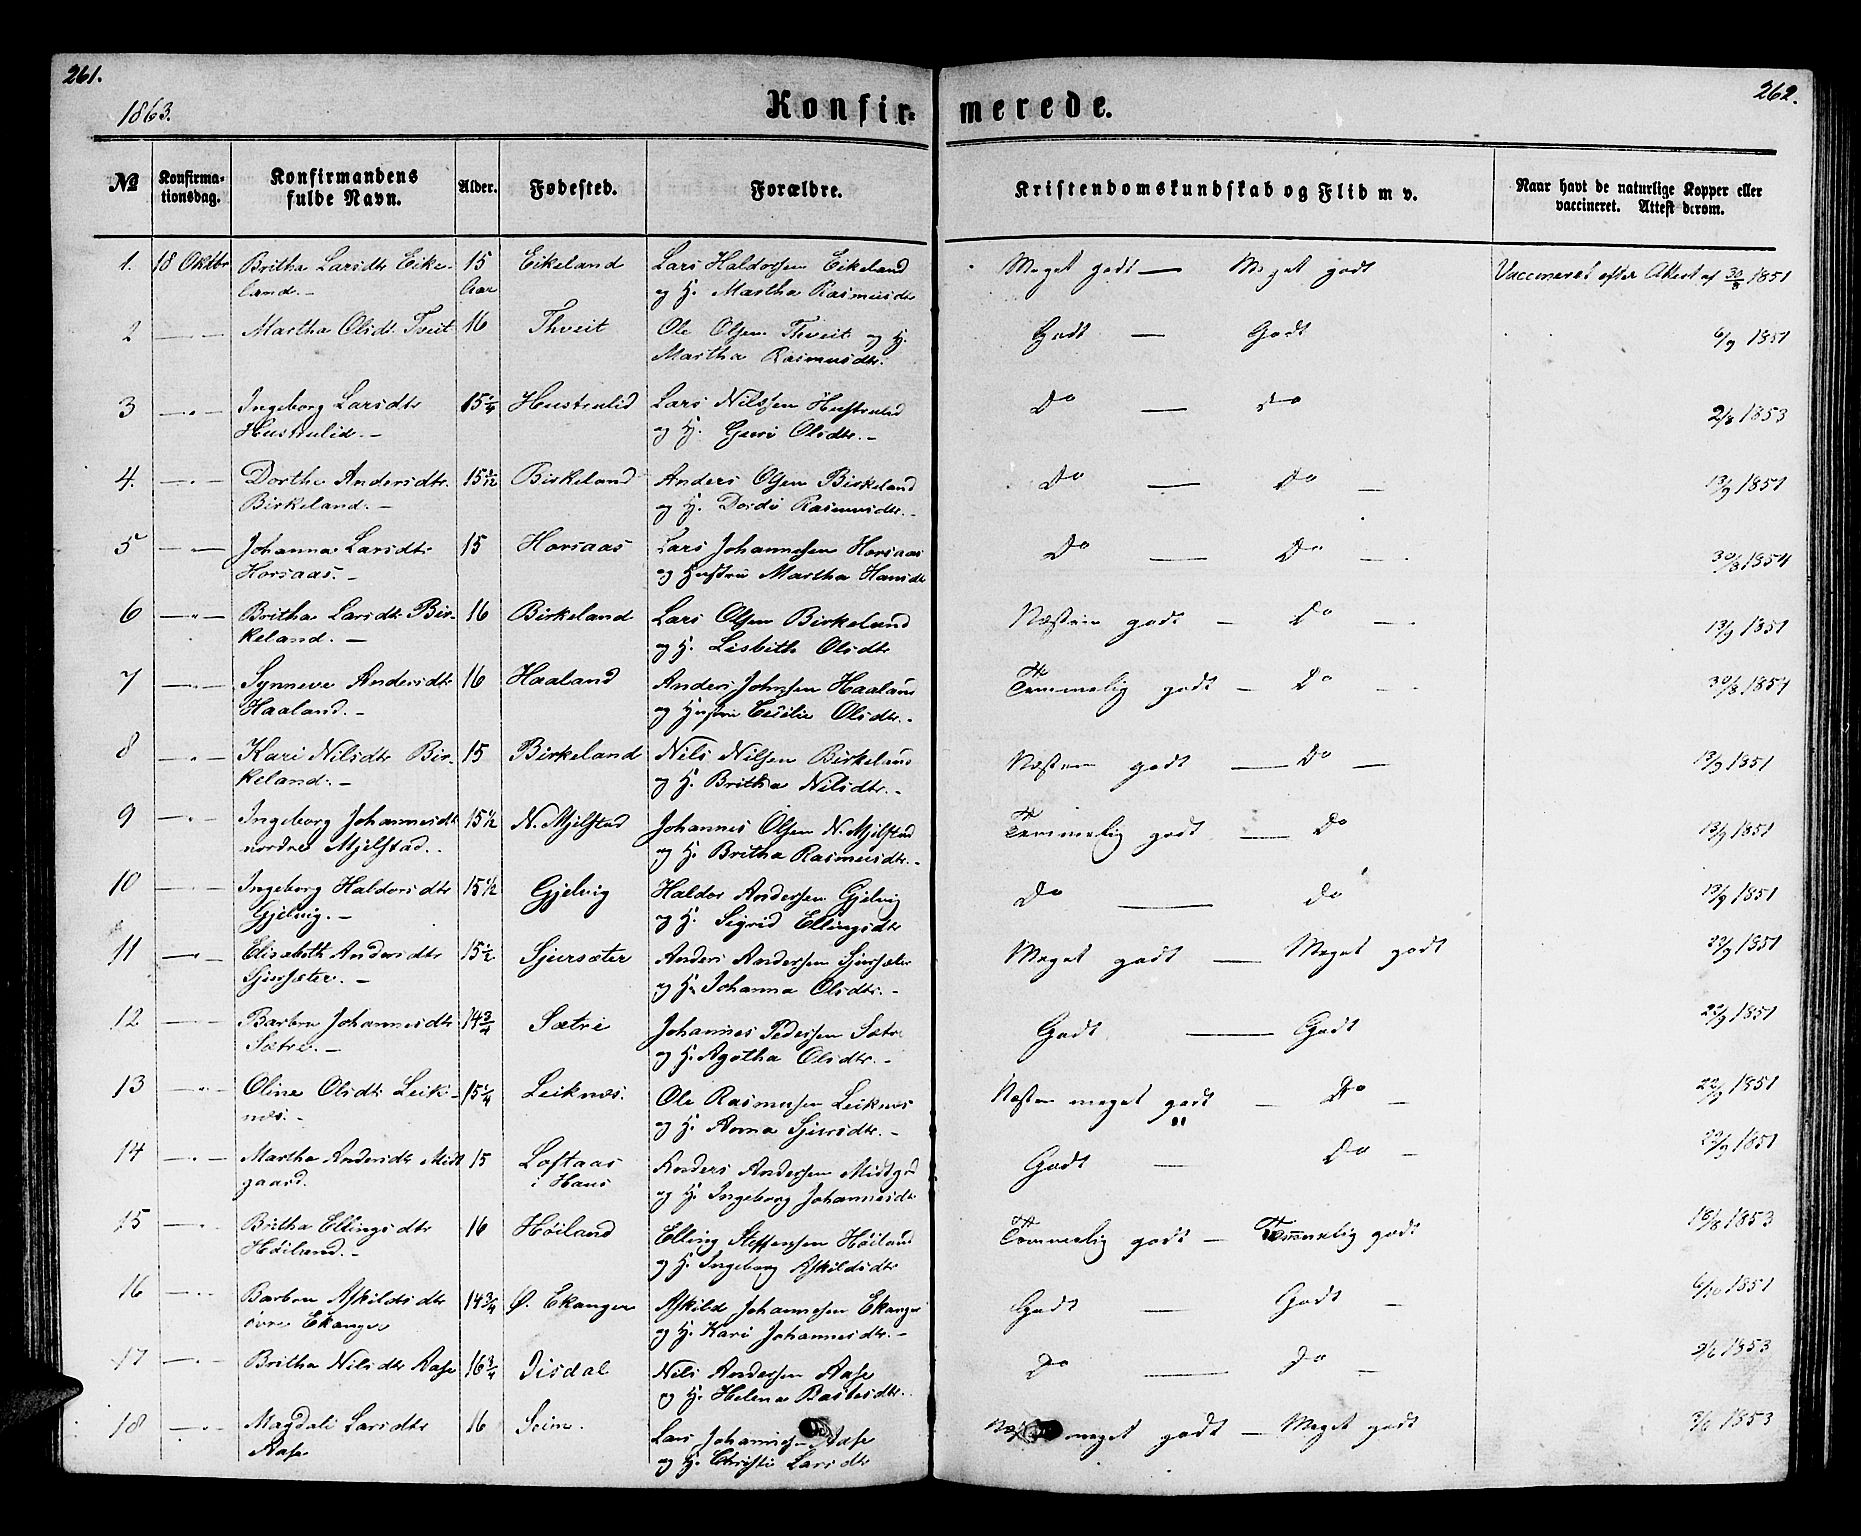 261.
1863.
Konfir=
№
Konfirma=
tionsdag.
Konfirmandens
fulde Navn.
Alder.
Fødested.
Forældre.
1. 18 Oktbr Britha Larsdtr Eike- 15 Eikeland Lars Haldorsen Eikeland
land.- Aar og H. Martha Rasmusdtr
2 Martha Olsdtr Tveit 16 Thveit Ole Olsen Thveit og H.
Martha Rasmusdtr.
3 —"— Ingeborg Larsdtr 15¼ Hustrulid Lars Nilssen Hustrulid
Hustrulid.- og H. Guri Olsdtr.-
4. —"— Dorthe Andersdtr. Birkeland Anders Olsen Birkeland
Birkeland.- og H. Dordi Rasmusdtr.-
5 —"— Johanna Larsdtr 15 Horsaas Lars Johannessen Horsaas
Horsaas.- og Hustru Martha Hansdtr
6 —"— Britha Larsdtr Bir- 16 Birkeland Lars Olsen Birkeland
keland.- og H. Lisbeth Olsdtr
7 —"— Synneve Andersdtr 16 Haaland Anders Johnsen Haaland
Haaland.- og Hustru Cecilie Olsdtr.-
8 —"— Kari Nilsdtr Bir- 15 Birkeland Nils Nilsen Birkeland
keland.- og H. Britha Nilsdtr.-
9 —"— Ingeborg Johannesdtr 15½ N. Mjelstad Johannes Olsen N. Mjelstad
nordre Mjelstad.. og H. Britha Rasmusdtr.-
10 —"— Ingeborg Haldorsdtr 15½ Gjelvig Haldor Anderssen Gjelvig
Gjelvig.- og H. Sigrid Ellingsdtr
11 —"— Elisabeth Andersdtr 15½ Sjursæter Anders Anderssen Sjursæter
Sjursæter.- og H. Johanna Olsdtr.-
12 —"— Barbru Johannesdtr 14¾ Sætre Johannes Pederssen Sætre
Sætre.- og H. Agotha Olsdtr.-
13 —"— Oline Olsdtr Leik- 15¼ Leiknæs. Ole Rasmussen Leiknæs
næs.- og H. Anna Sjursdtr.-
14 —"— Martha Andersdtr Midt 15 Loftaas Anders Anderssen Midtgrd
gaard. i Haus og H. Ingeborg Johannesdtr
15 —"— Britha Ellingsdtr 16 Høiland Elling Steffenssen Høiland
Høiland.- og H. Ingeborg Askildsdtr
16 —"— Barbru Askildsdtr 14¾ Ø. Ekanger Askild Johannessen Ekanger
øvre Ekanger og H. Kari Johannesdtr.-
17 —"— Britha Nilsdtr Aase 16¾ Isdal Nils Anderssen Aase
og H. Helena Bastesdtr.
18 —"— Magdali Larsdtr 16 Seim. Lars Johannessen Aase
Aase og H. Christi Larsdtr
262.
merede.
Kristendomskundskab og Flid m v.
Naar havt de naturlige Kopper eller
vaccineret. Attest derom.
Meget godt — Meget godt Vaccineret efter Attest af 30/8 1851
Godt — Godt 6/9 1851
Do — Do 2/8 1853
Do — Do — 13/9 1851
Do — Do — 30/8 1854
Næsten godt — Do — 13/9 1851
Temmelig godt — Do — 30/8 1854
Næsten godt — Do — 13/9 1851
Temmelig godt — Do 13/9 1851
Do — Do 13/9 1851
Meget godt — Meget godt 22/9 1851
Godt — Godt 22/9 1851
Næsten meget godt — Do — 22/9 1851
Godt — Do — 22/9 1851
Temmelig godt — Temmelig godt 18/8 1853
Godt — Godt — 6/10 1851
Do — Do — 2/6 1853
meget godt — Meget godt 3/6 1853